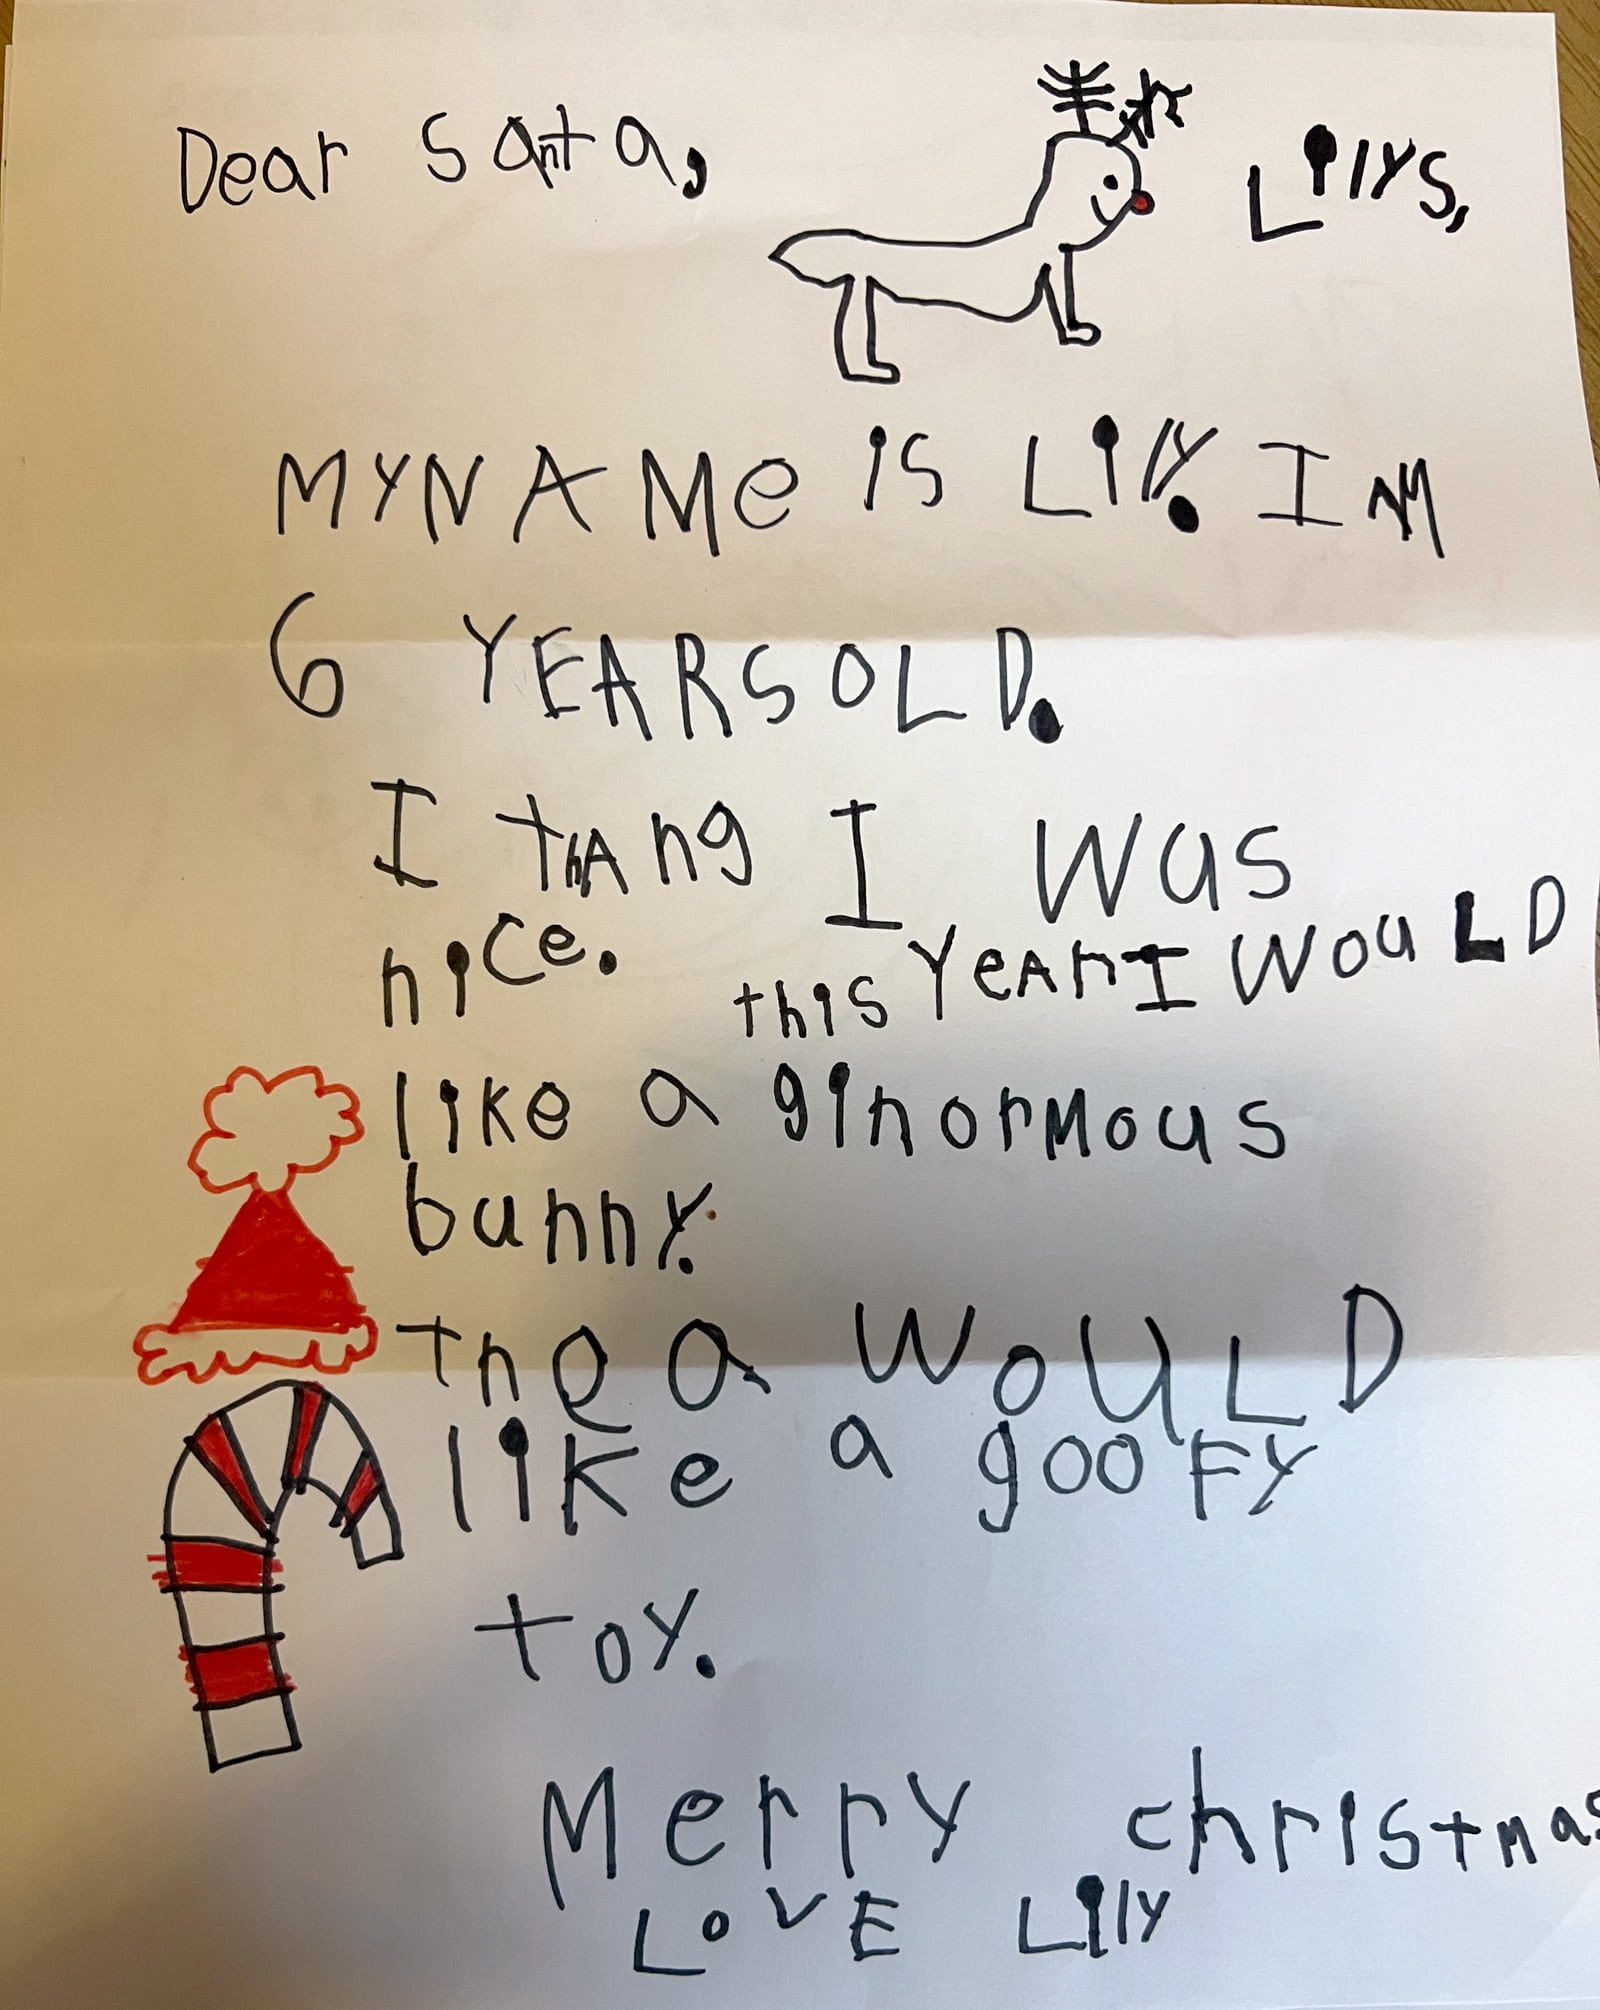 Dear Santa, Lilys,
MY NAMe is Lily. I M
6 YEARS OLD.
I thAng I was
nice. this YeArI WouLD
like a ginorMous
bunny.
theA WOULD
like a gooFY
toy.
Merry christmas
LOVE Lily